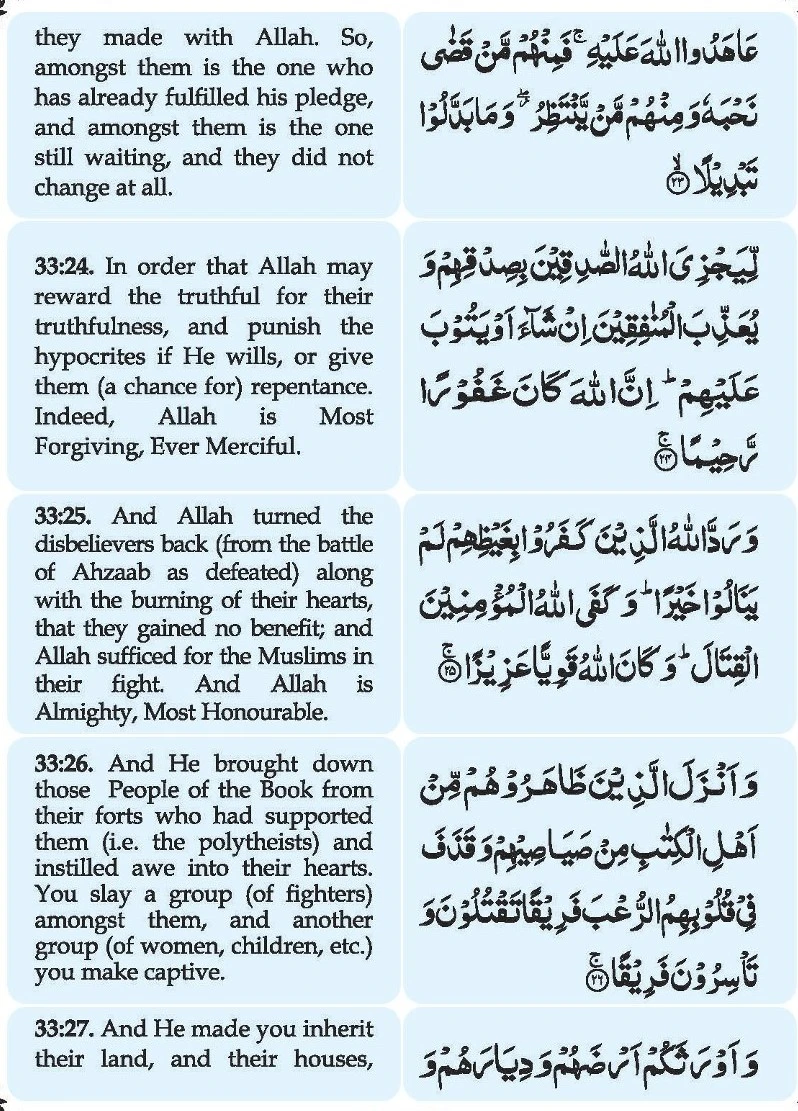 they made with Allah. So,
amongst them is the one who
has already fulfilled his pledge,
and amongst them is the one
still waiting, and they did not
change at all.
عَاهَدُوا اللّٰهَ عَلَيْهِ ۚ فَمِنْهُمْ مَّنْ قَضٰى
نَحْبَهٗ وَمِنْهُمْ مَّنْ يَّنْتَظِرُ ۖ وَمَا بَدَّلُوْا
تَبْدِيْلًا ۙ﴿۲۳﴾
33:24. In order that Allah may
reward the truthful for their
truthfulness, and punish the
hypocrites if He wills, or give
them (a chance for) repentance.
Indeed, Allah is Most
Forgiving, Ever Merciful.
لِّيَجْزِىَ اللّٰهُ الصّٰدِقِيْنَ بِصِدْقِهِمْ وَ
يُعَذِّبَ الْمُنٰفِقِيْنَ اِنْ شَآءَ اَوْ يَتُوْبَ
عَلَيْهِمْ ؕ اِنَّ اللّٰهَ كَانَ غَفُوْرًا
رَّحِيْمًا ۚ﴿۲۴﴾
33:25. And Allah turned the
disbelievers back (from the battle
of Ahzaab as defeated) along
with the burning of their hearts,
that they gained no benefit; and
Allah sufficed for the Muslims in
their fight. And Allah is
Almighty, Most Honourable.
وَرَدَّ اللّٰهُ الَّذِيْنَ كَفَرُوْا بِغَيْظِهِمْ لَمْ
يَنَالُوْا خَيْرًا ؕ وَكَفَى اللّٰهُ الْمُؤْمِنِيْنَ
الْقِتَالَ ؕ وَكَانَ اللّٰهُ قَوِيًّا عَزِيْزًا ۚ﴿۲۵﴾
33:26. And He brought down
those People of the Book from
their forts who had supported
them (i.e. the polytheists) and
instilled awe into their hearts.
You slay a group (of fighters)
amongst them, and another
group (of women, children, etc.)
you make captive.
وَاَنْزَلَ الَّذِيْنَ ظَاهَرُوْهُمْ مِّنْ
اَهْلِ الْكِتٰبِ مِنْ صَيَاصِيْهِمْ وَقَذَفَ
فِىْ قُلُوْبِهِمُ الرُّعْبَ فَرِيْقًا تَقْتُلُوْنَ وَ
تَاْسِرُوْنَ فَرِيْقًا ۚ﴿۲۶﴾
33:27. And He made you inherit
their land, and their houses,
وَاَوْرَثَكُمْ اَرْضَهُمْ وَدِيَارَهُمْ وَ